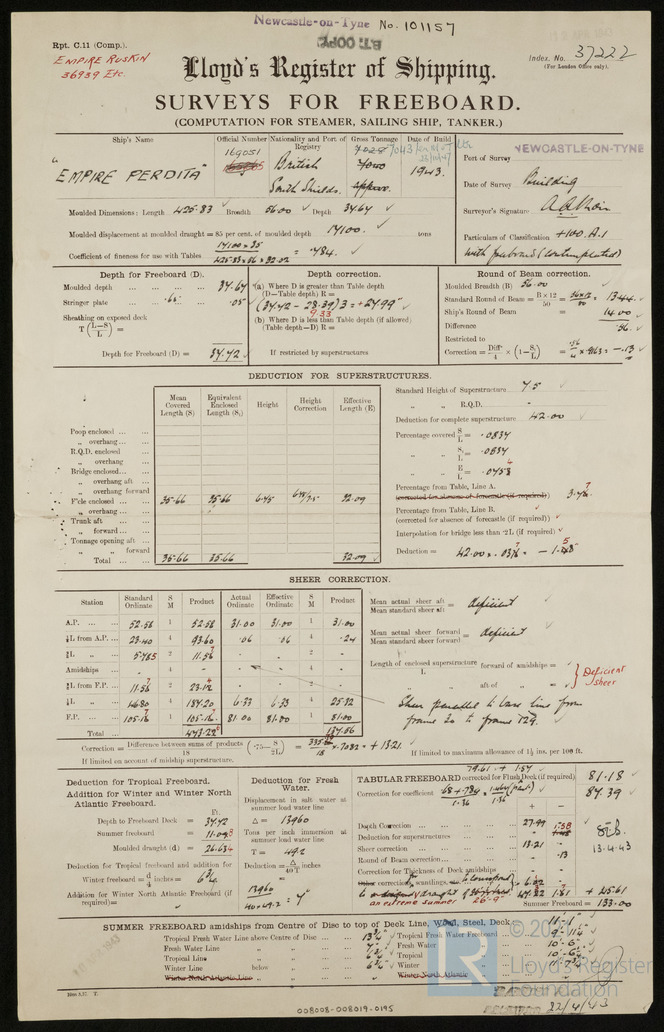 Newcastle-on-Tyne No. 101157
Rpt. C.11 (Comp.).
EMPIRE RUSKIN
36939 Etc.
Index. No. 37222
(For London Office only).
Lloyd's Register of Shipping.
SURVEYS FOR FREEBOARD.
(COMPUTATION FOR STEAMER, SAILING SHIP, TANKER.)
Ship's Name Official Number Nationality and Port of Registry Gross Tonnage Date of Build
"EMPIRE PERDITA" 169051 British South Shields. 7043 1943.
Port of Survey NEWCASTLE-ON-TYNE
Date of Survey Building
Surveyor's Signature
Particulars of Classification +100.A.1
with freeboard (contemplated)
Moulded Dimensions: Length 425.83 Breadth 56.00 Depth 34.67
Moulded displacement at moulded draught = 85 per cent. of moulded depth 14100. tons
Coefficient of fineness for use with Tables 14100 × 35 = .784.
Depth for Freeboard (D).
Moulded depth ... 34.67
Stringer plate ... .05
Sheathing on exposed deck
T (L−S/L) =
Depth for Freeboard (D) = 34.72
Depth correction.
(a) Where D is greater than Table depth
(D—Table depth) R =
(b) Where D is less than Table depth (if allowed)
(Table depth—D) R =
If restricted by superstructures
Round of Beam correction.
Moulded Breadth (B) 56.00
Standard Round of Beam = B×12/50 = 56×12/50 = 13.44
Ship's Round of Beam = 14.00
Difference .56
Restricted to
Correction = Diff/4 × (1−S/L) = .56/4 × .963 = −.13
DEDUCTION FOR SUPERSTRUCTURES.
Mean Covered Length (S) Equivalent Enclosed Length (S₁) Height Height Correction Effective Length (E)
Poop enclosed
„ overhang
R.Q.D. enclosed
„ overhang
Bridge enclosed
„ overhang aft
„ overhang forward
F'cle enclosed 35.66 35.66 6.75 6.75/7.5 32.09
„ overhang
Trunk aft
„ forward
Tonnage opening aft
„ „ forward
Total 35.66 35.66 32.09
Standard Height of Superstructure 7.5
„ „ R.Q.D. -
Deduction for complete superstructure 42.00
Percentage covered S/L = .0837
„ „ S₁/L = .0837
„ „ E/L =
Percentage from Table, Line A.
(corrected for absence of forecastle (if required))
Percentage from Table, Line B.
(corrected for absence of forecastle (if required))
Interpolation for bridge less than ·2L (if required)
Deduction =
SHEER CORRECTION.
Station Standard Ordinate S M Product Actual Ordinate Effective Ordinate S M Product
A.P. 52.58 1 52.58 31.00 31.00 1 31.00
⅙L from A.P. 23.40 4 93.60 .06 .06 4 .24
⅓L „ 5.785 2 11.57 - - 2 -
Amidships - 4 - - - 4 -
⅓L from F.P. 11.57 2 23.14 - - 2 -
⅙L „ 46.80 4 187.20 6.33 6.33 4 25.32
F.P. 105.17 1 105.17 81.00 81.00 1 81.00
Total 137.56
Mean actual sheer aft / Mean standard sheer aft = deficient
Mean actual sheer forward / Mean standard sheer forward = deficient
Length of enclosed superstructure / L forward of amidships =
„ „ aft of „ =
Deficient sheer
Sheer parallel to base line from
frame 20 to frame 129.
Correction = Difference between sums of products / 18 (·75− S/2L) = + 13.21
If limited on account of midship superstructure.
If limited to maximum allowance of 1½ ins. per 100 ft.
Deduction for Tropical Freeboard.
Addition for Winter and Winter North Atlantic Freeboard.
Ft.
Depth to Freeboard Deck = 34.72
Summer freeboard =
Moulded draught (d) =
Deduction for Tropical freeboard and addition for
Winter freeboard = d/4 inches = 6¾
Addition for Winter North Atlantic Freeboard (if required) =
Deduction for Fresh Water.
Displacement in salt water at summer load water line
Δ = 13960
Tons per inch immersion at summer load water line
T = 49.2
Deduction = Δ/40T inches
= 13960/40×49.2 = 7"
79.61 + 1.57
TABULAR FREEBOARD corrected for Flush Deck (if required) 81.18
Correction for coefficient 84.39
+ −
Depth Correction 27.99
Deduction for superstructures
Sheer correction 13.21 -
Round of Beam correction - .13
Correction for Thickness of Deck amidships - -
an extreme summer 26'-9"
Summer Freeboard = 133.00
13.4.43
SUMMER FREEBOARD amidships from Centre of Disc to top of Deck Line, Wood, Steel, Deck 11'-1"
Tropical Fresh Water Line above Centre of Disc 13¾" Tropical Fresh Water Freeboard 9'-11¼"
Fresh Water Line „ „ 7" Fresh Water „ 10'-6"
Tropical Line „ „ 6¾" Tropical „
Winter Line below „ „ 6¾" Winter „ 11'-7¾"
Winter North Atlantic Line „ „ Winter North Atlantic „
22/4/43
© 20
Lloyd's Register
Foundation
008008-008019-0195